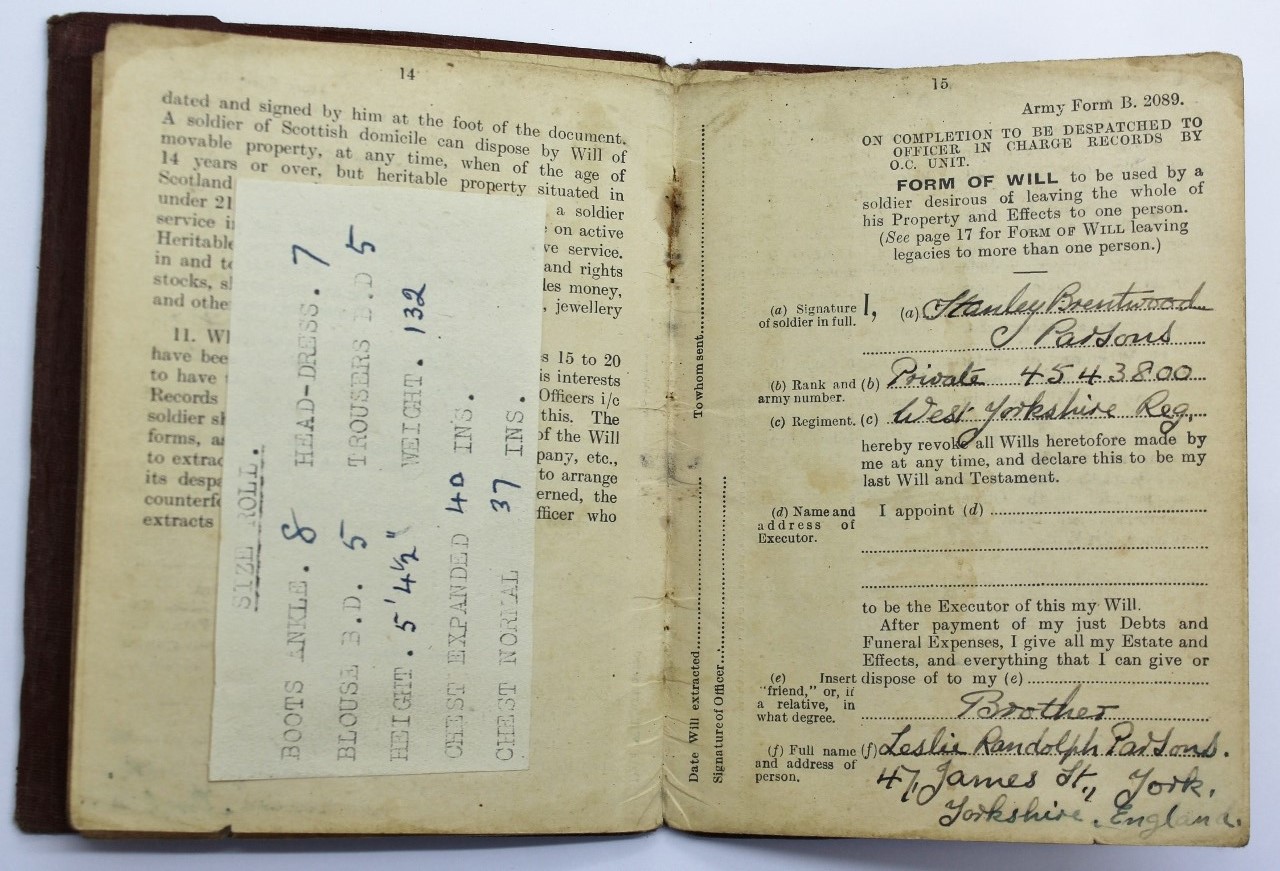 14
dated and signed by him at the foot of the document.
A soldier of Scottish domicile can dispose by Will of
movable property, at any time, when of the age of
14 years or over, but heritable property situated in
Scotland
under 21 a soldier
service on active
Heritable ve service.
in and and rights
stocks, les money,
and othe , jewellery
11. s 15 to 20
have bee is interests
to have Officers i/c
Records this. The
soldier of the Will
forms, pany, etc.,
to extrac to arrange
its despa erned, the
counterf fficer who
extracts
SIZE ROLL.
BOOTS ANKLE. 8 HEAD-DRESS. 7
BLOUSE B.D. 5 TROUSERS B.D 5
HEIGHT. 5' 4½" WEIGHT. 132
CHEST EXPANDED 40 INS.
CHEST NORMAL 37 INS.
Date Will extracted To whom sent
Signature of Officer
15
Army Form B. 2089.
ON COMPLETION TO BE DESPATCHED TO
OFFICER IN CHARGE RECORDS BY
O.C. UNIT.
FORM OF WILL to be used by a
soldier desirous of leaving the whole of
his Property and Effects to one person.
(See page 17 for FORM OF WILL leaving
legacies to more than one person.)
(a) Signature of soldier in full. I, (a) Stanley Brentwood
Parsons
(b) Rank and army number. (b) Private 4543800
(c) Regiment. (c) West Yorkshire Reg.
hereby revoke all Wills heretofore made by
me at any time, and declare this to be my
last Will and Testament.
(d) Name and address of Executor. I appoint (d)
to be the Executor of this my Will.
After payment of my just Debts and
Funeral Expenses, I give all my Estate and
Effects, and everything that I can give or
dispose of to my (e)
(e) Insert "friend," or, if a relative, in what degree. Brother
(f) Full name and address of person. (f) Leslie Randolph Parsons.
47, James St., York,
Yorkshire. England.